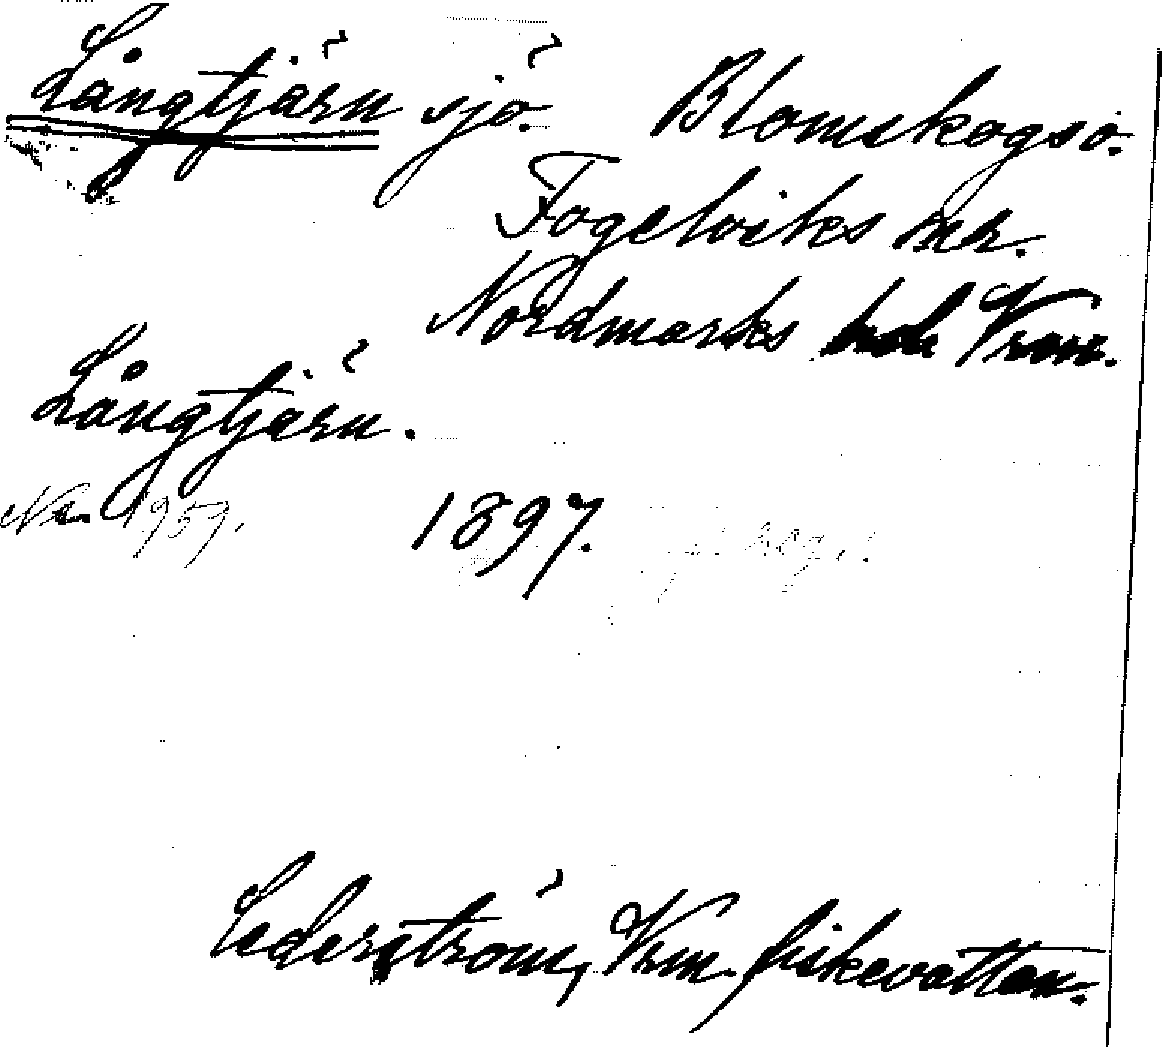 Långtjärn sjö. Blomskogs s.
Fogelviks mk.
Nordmarks hd. Vrm.
Långtjärn.
1959.
1897.
Cederström, Vrm. fiskevatten.